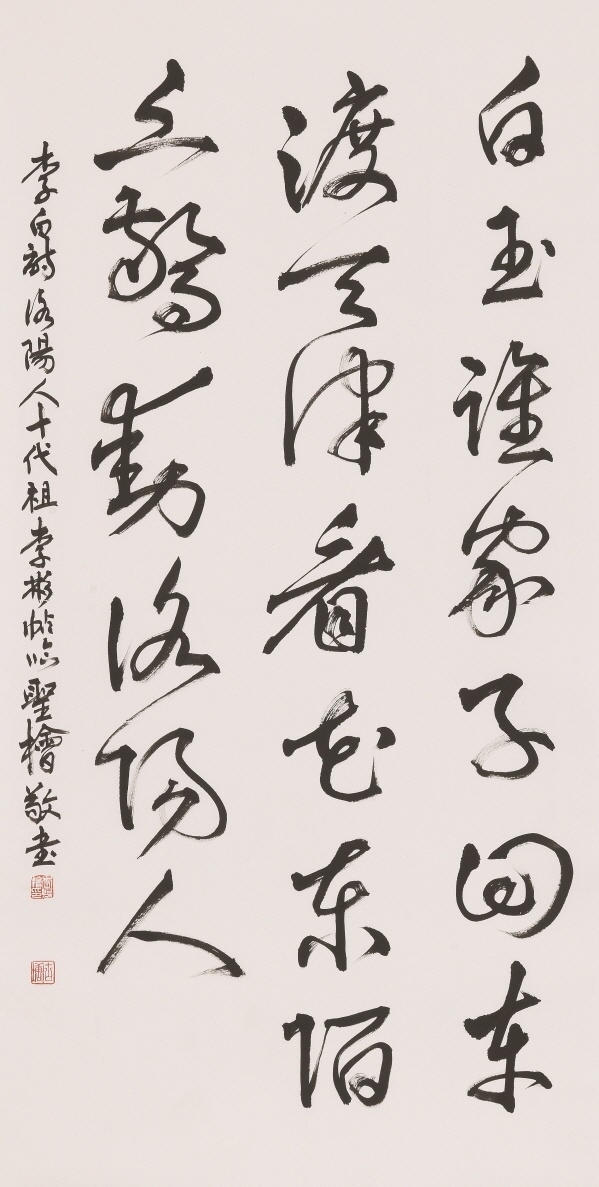 白玉誰家子回車
渡天津看花東陌
上驚動洛陽人
李白詩洛陽人十代祖李彬帖临聖檜敬書